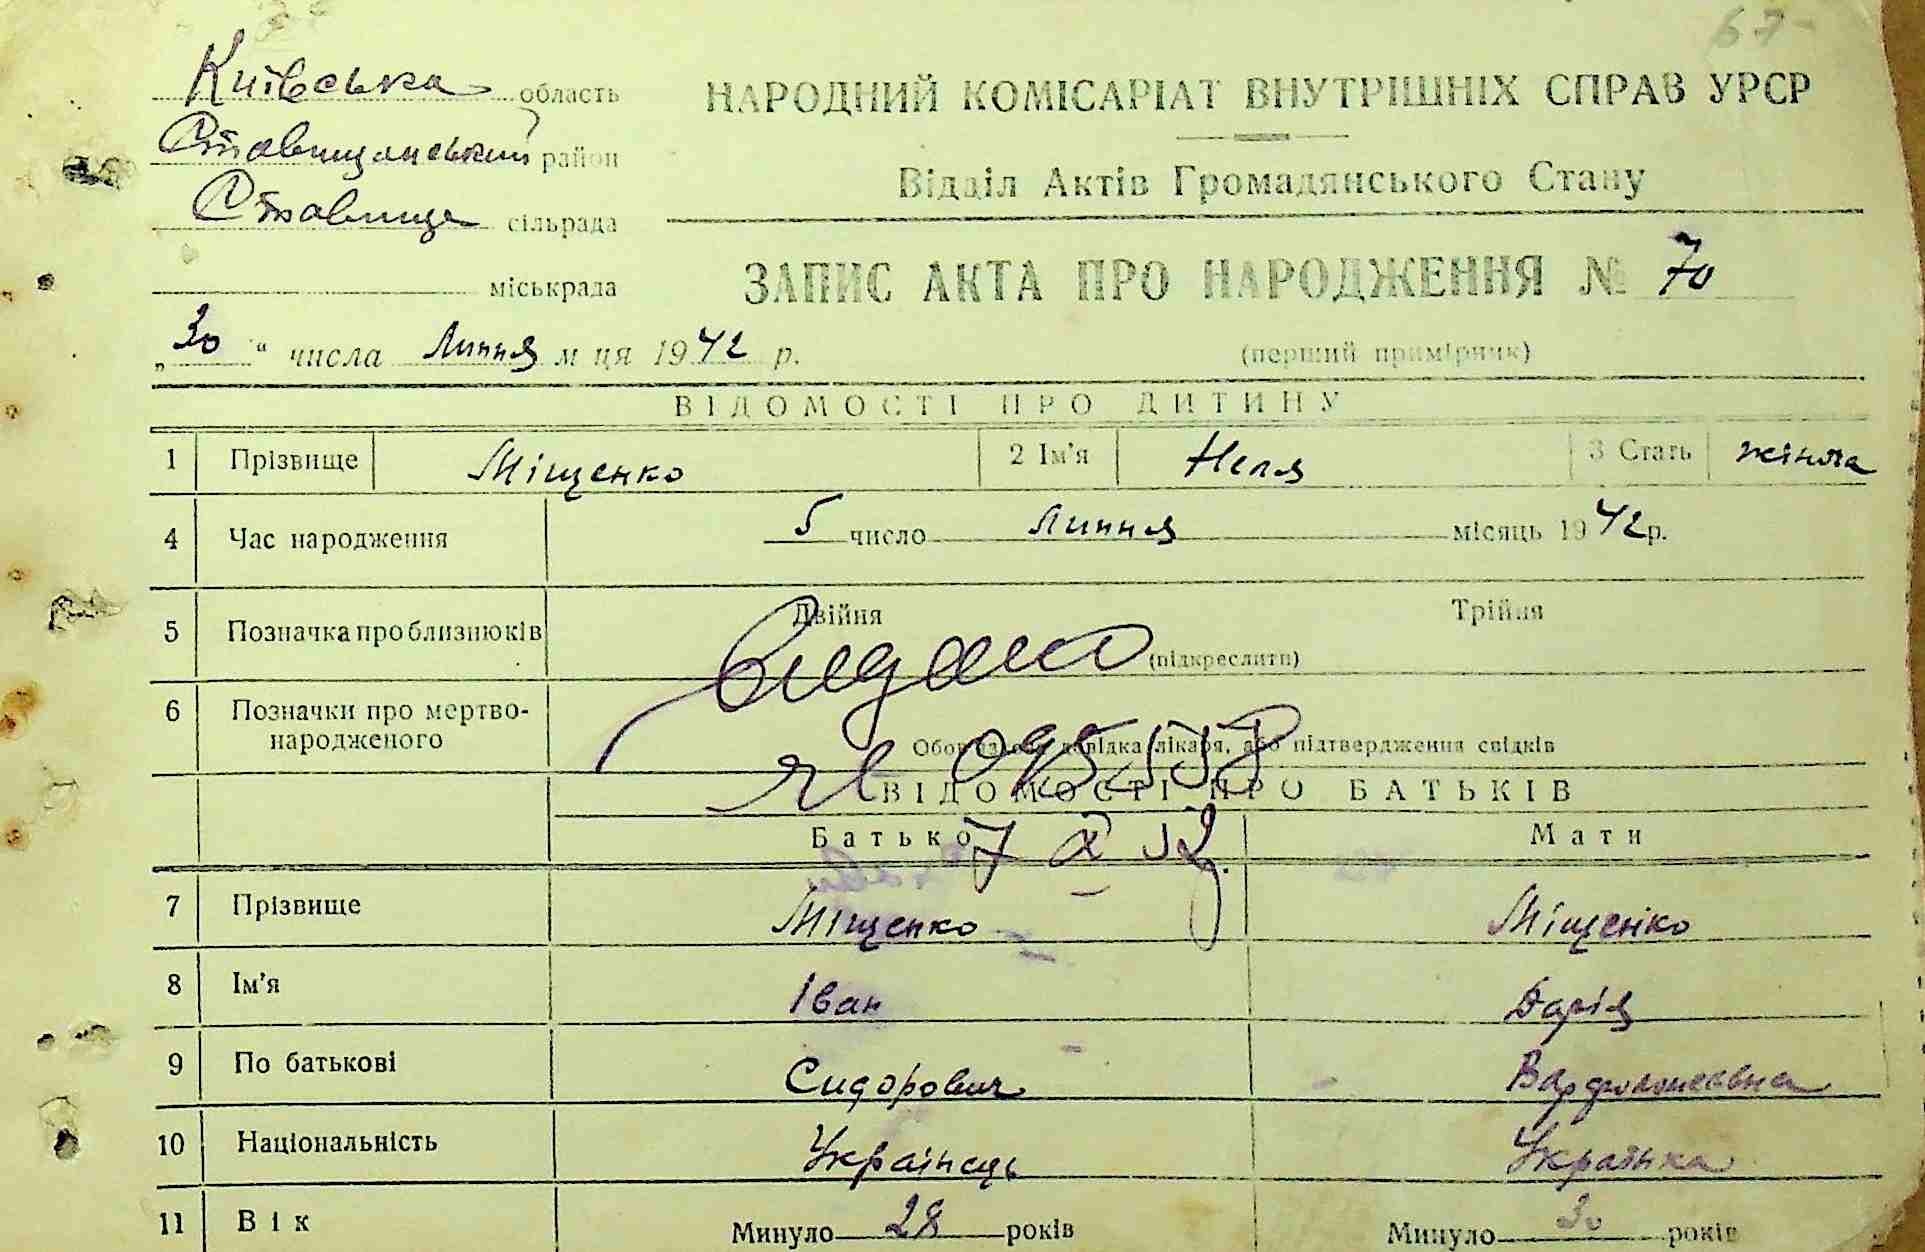 67
Київська область
Ставищанський район
Ставище сільрада
міськрада
„30“ числа Липня м ця 1942 р.
НАРОДНИЙ КОМІСАРІАТ ВНУТРІШНІХ СПРАВ УРСР
Відділ Актів Громадянського Стану
ЗАПИС АКТА ПРО НАРОДЖЕННЯ № 70
(перший примірник)
ВІДОМОСТІ ПРО ДИТИНУ
1 Прізвище Міщенко 2 Ім'я Неля 3 Стать жіноча
4 Час народження 5 число Липня місяць 1942 р.
5 Позначка про близнюків Двійня Трійня
(підкреслити)
Видано
6 Позначки про мертво-
народженого
Обов'язкова довідка лікаря, або підтвердження свідків
095558
ВІДОМОСТІ ПРО БАТЬКІВ
Батько Мати
7 X 52
7 Прізвище Міщенко Міщенко
8 Ім'я Іван Дарія
9 По батькові Сидорович Варфоломеевна
10 Національність Українець Українка
11 Вік Минуло 28 років Минуло 30 років